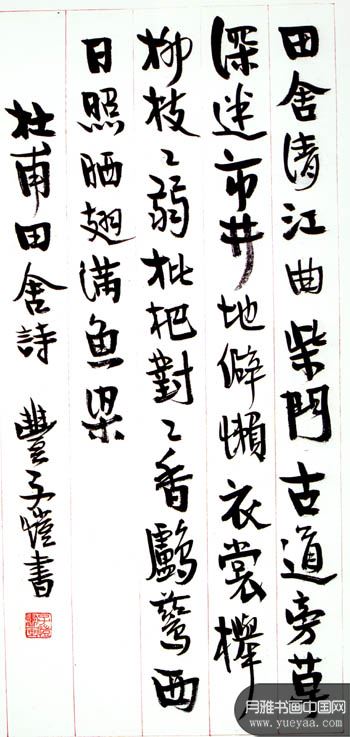 田舍清江曲柴門古道旁草
深迷市井地僻懶衣裳櫸
柳枝々弱枇杷對々香鸕鶿西
日照晒翅满鱼梁
杜甫田舍詩 豐子愷書
月雅书画中国网
www.yueyaa.com